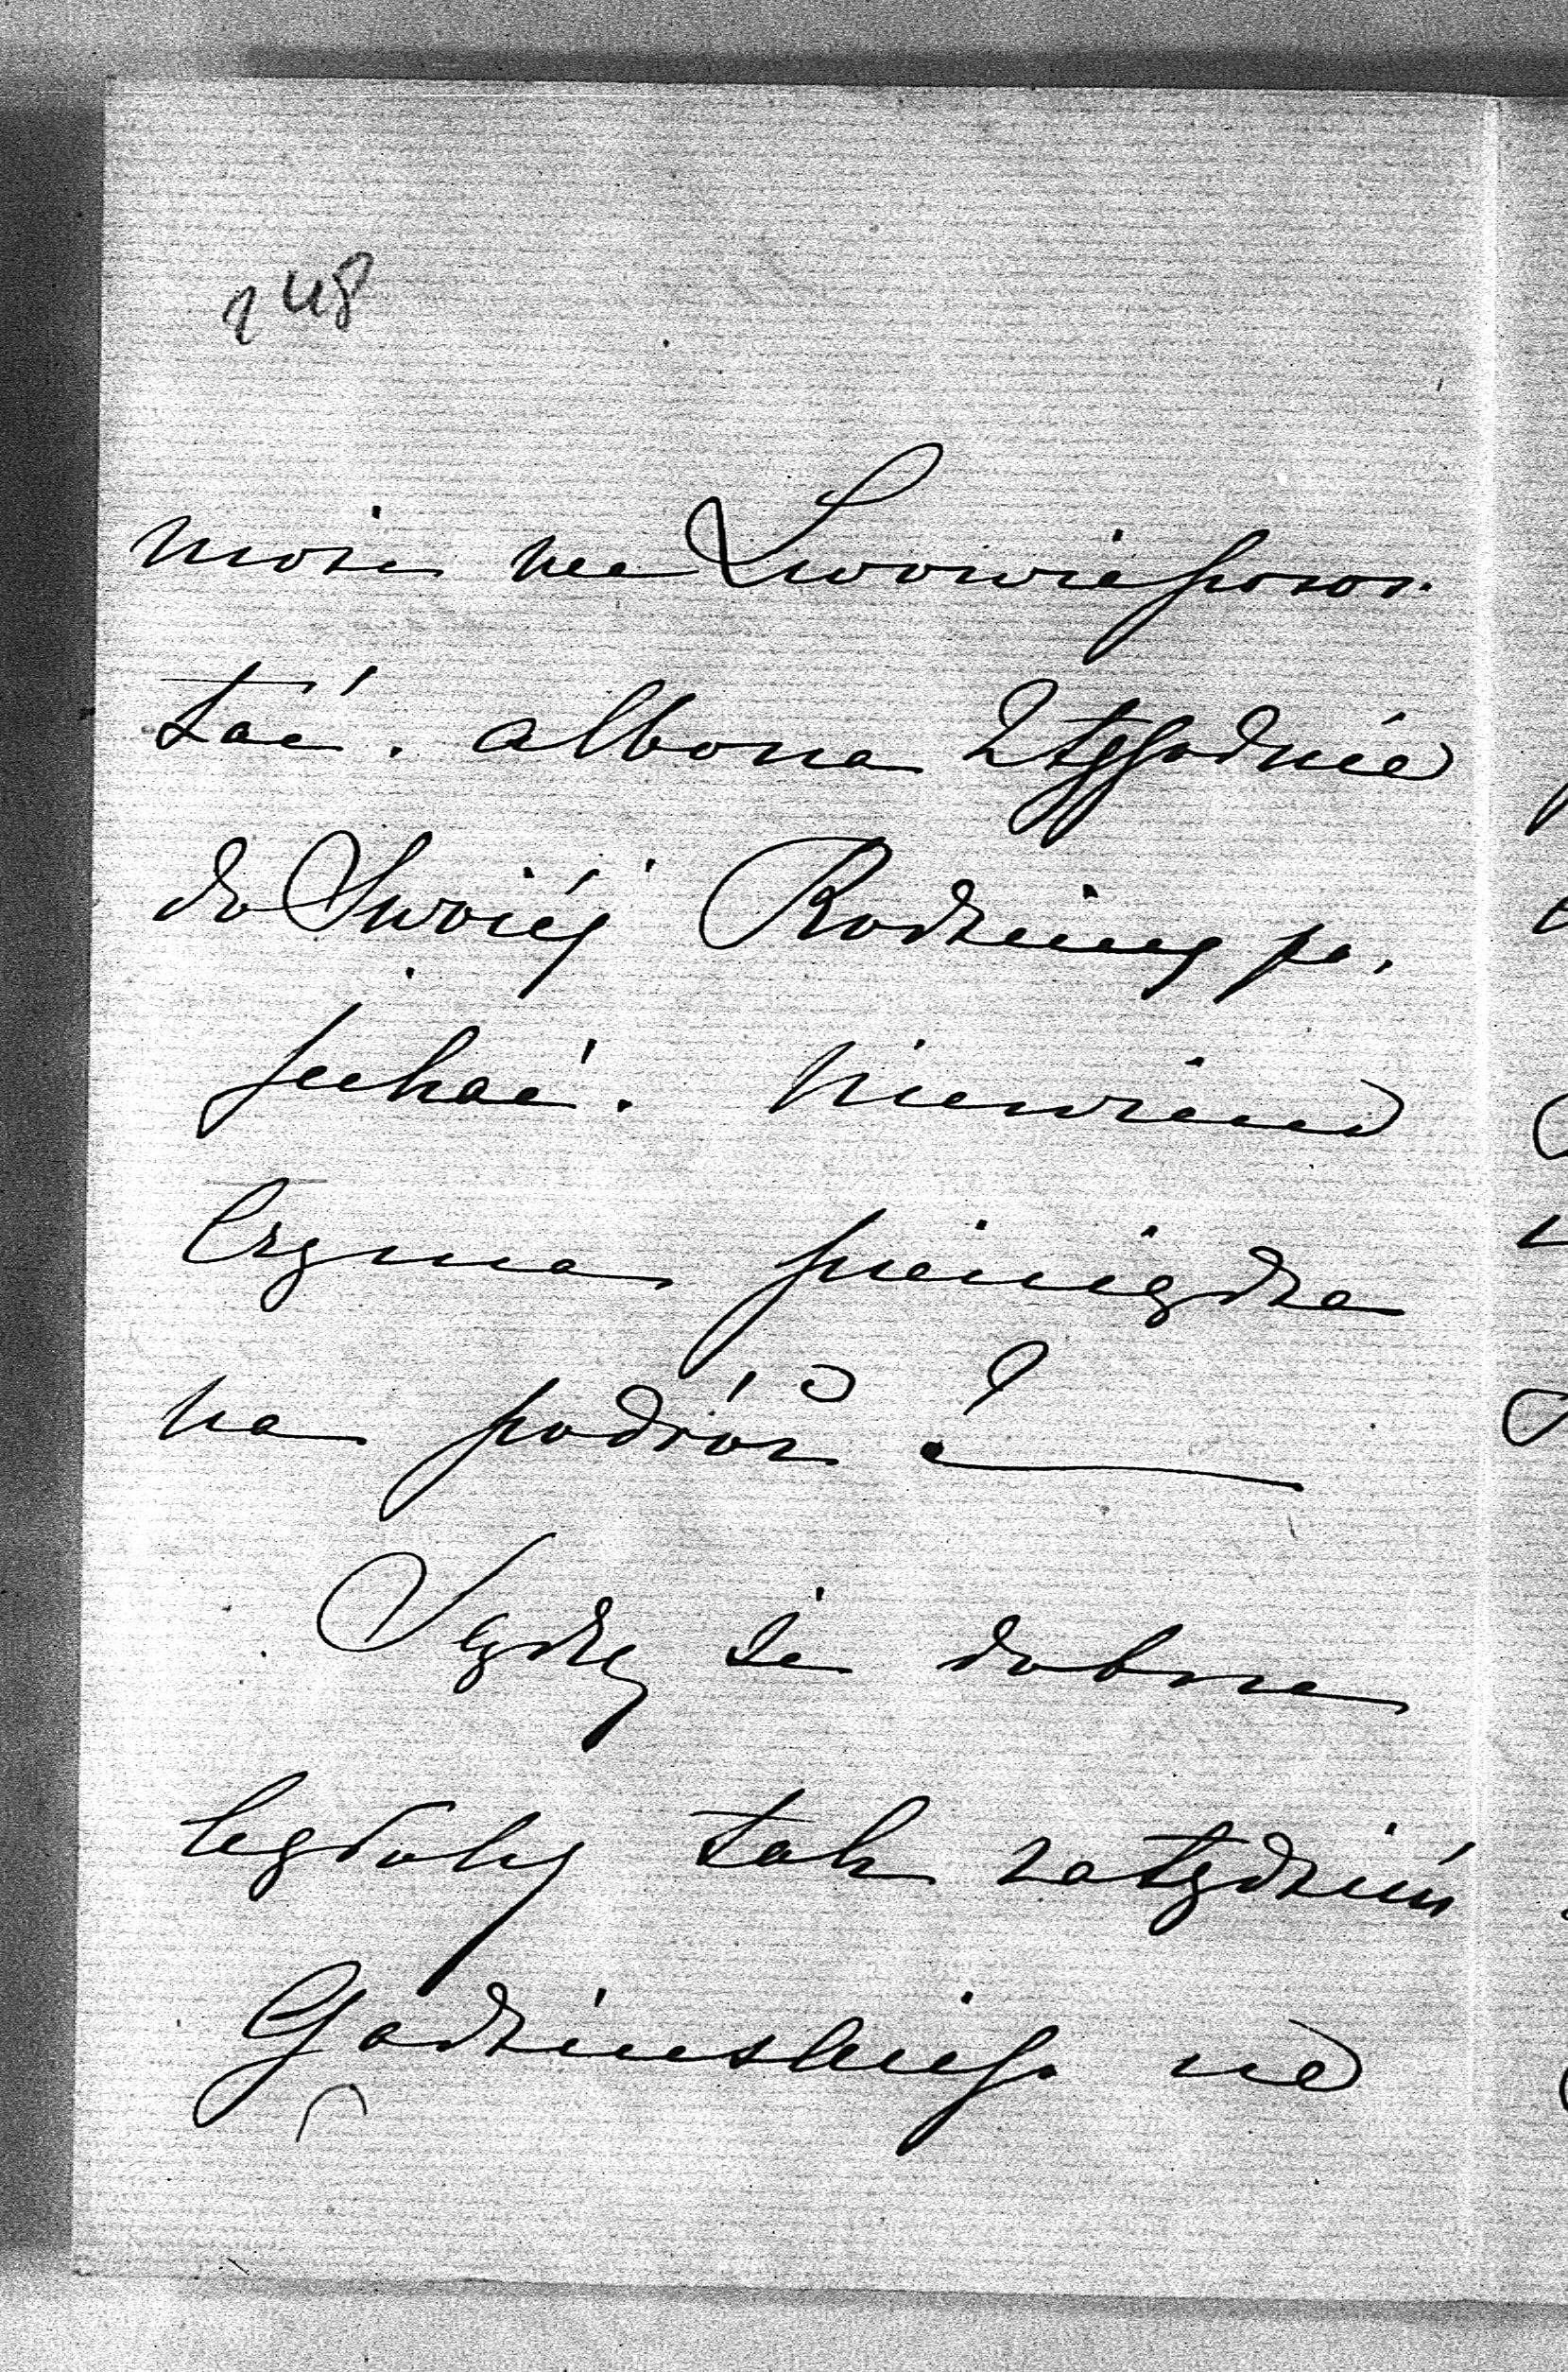 248
może we Lwowie pozos-
tać. albo na 2 tygodnie
do Swoiéj Rodziny po-
jechać. Niewiem
Czy ma pieniądze
na podróż?
Sądzę że dobrze
będzie tak za tydzień
Godzińskiego we